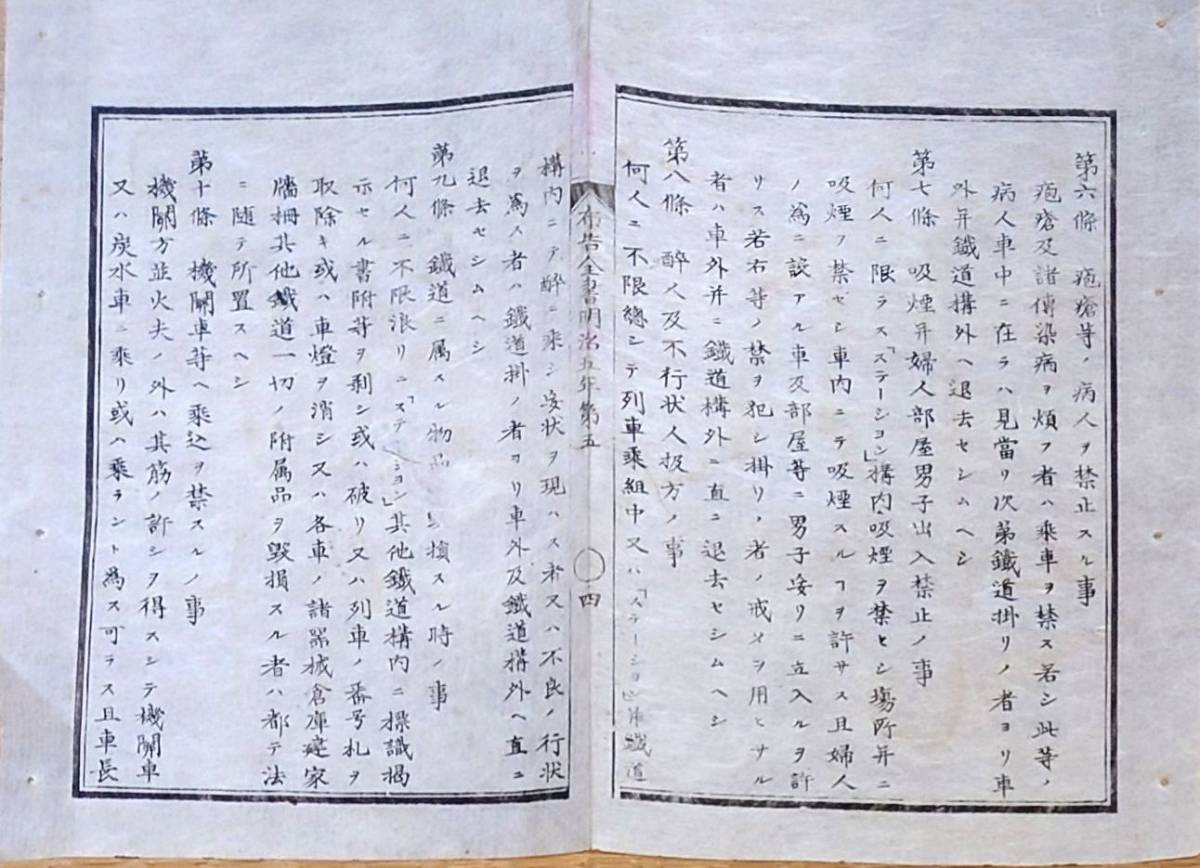 第六條 疱瘡等ノ病人ヲ禁止スル事
疱瘡及諸傳染病ヲ煩フ者ハ乘車ヲ禁ス若シ此等ノ
病人車中ニ在ラハ見當リ次第鐵道掛リノ者ヨリ車
外幷鐵道構外ヘ退去セシムヘシ
第七條 吸煙幷婦人部屋男子出入禁止ノ事
何人ニ限ラス「ステーション」構内吸煙ヲ禁セシ塲所幷ニ
吸煙ヲ禁セシ車内ニテ吸煙スルヿヲ許サス且婦人
ノ爲ニ設アル車及部屋等ニ男子妄リニ立入ルヲ許
サス若右等ノ禁ヲ犯シ掛リノ者ノ戒メヲ用ヒサル
者ハ車外幷ニ鐵道構外ニ直ニ退去セシムヘシ
第八條 醉人及不行状人扱方ノ事
何人ニ不限總シテ列車乘組中又ハ「ステーション」幷鐵道
布告全書明治五年第五 四
構内ニテ醉ニ乘シ妄状ヲ現ハス者又ハ不良ノ行状
ヲ爲ス者ハ鐵道掛ノ者ヨリ車外及鐵道構外ヘ直ニ
退去セシムヘシ
第九條 鐵道ニ属スル物品 損スル時ノ事
何人ニ不限浪リニ「ステーション」其他鐵道構内ニ標識揭
示セル書附等ヲ剥シ或ハ破リ又ハ列車ノ番号札ヲ
取除キ或ハ車燈ヲ消シ又ハ各車ノ諸器械倉庫建家
牆柵其他鐵道一切ノ附属品ヲ毀損スル者ハ都テ法
ニ隨テ所置スヘシ
第十條 機關車等ヘ乘込ヲ禁スルノ事
機關方並火夫ノ外ハ其筋ノ許シヲ得スシテ機關車
又ハ炭水車ニ乘リ或ハ乘ラント爲ス可ラス且車長